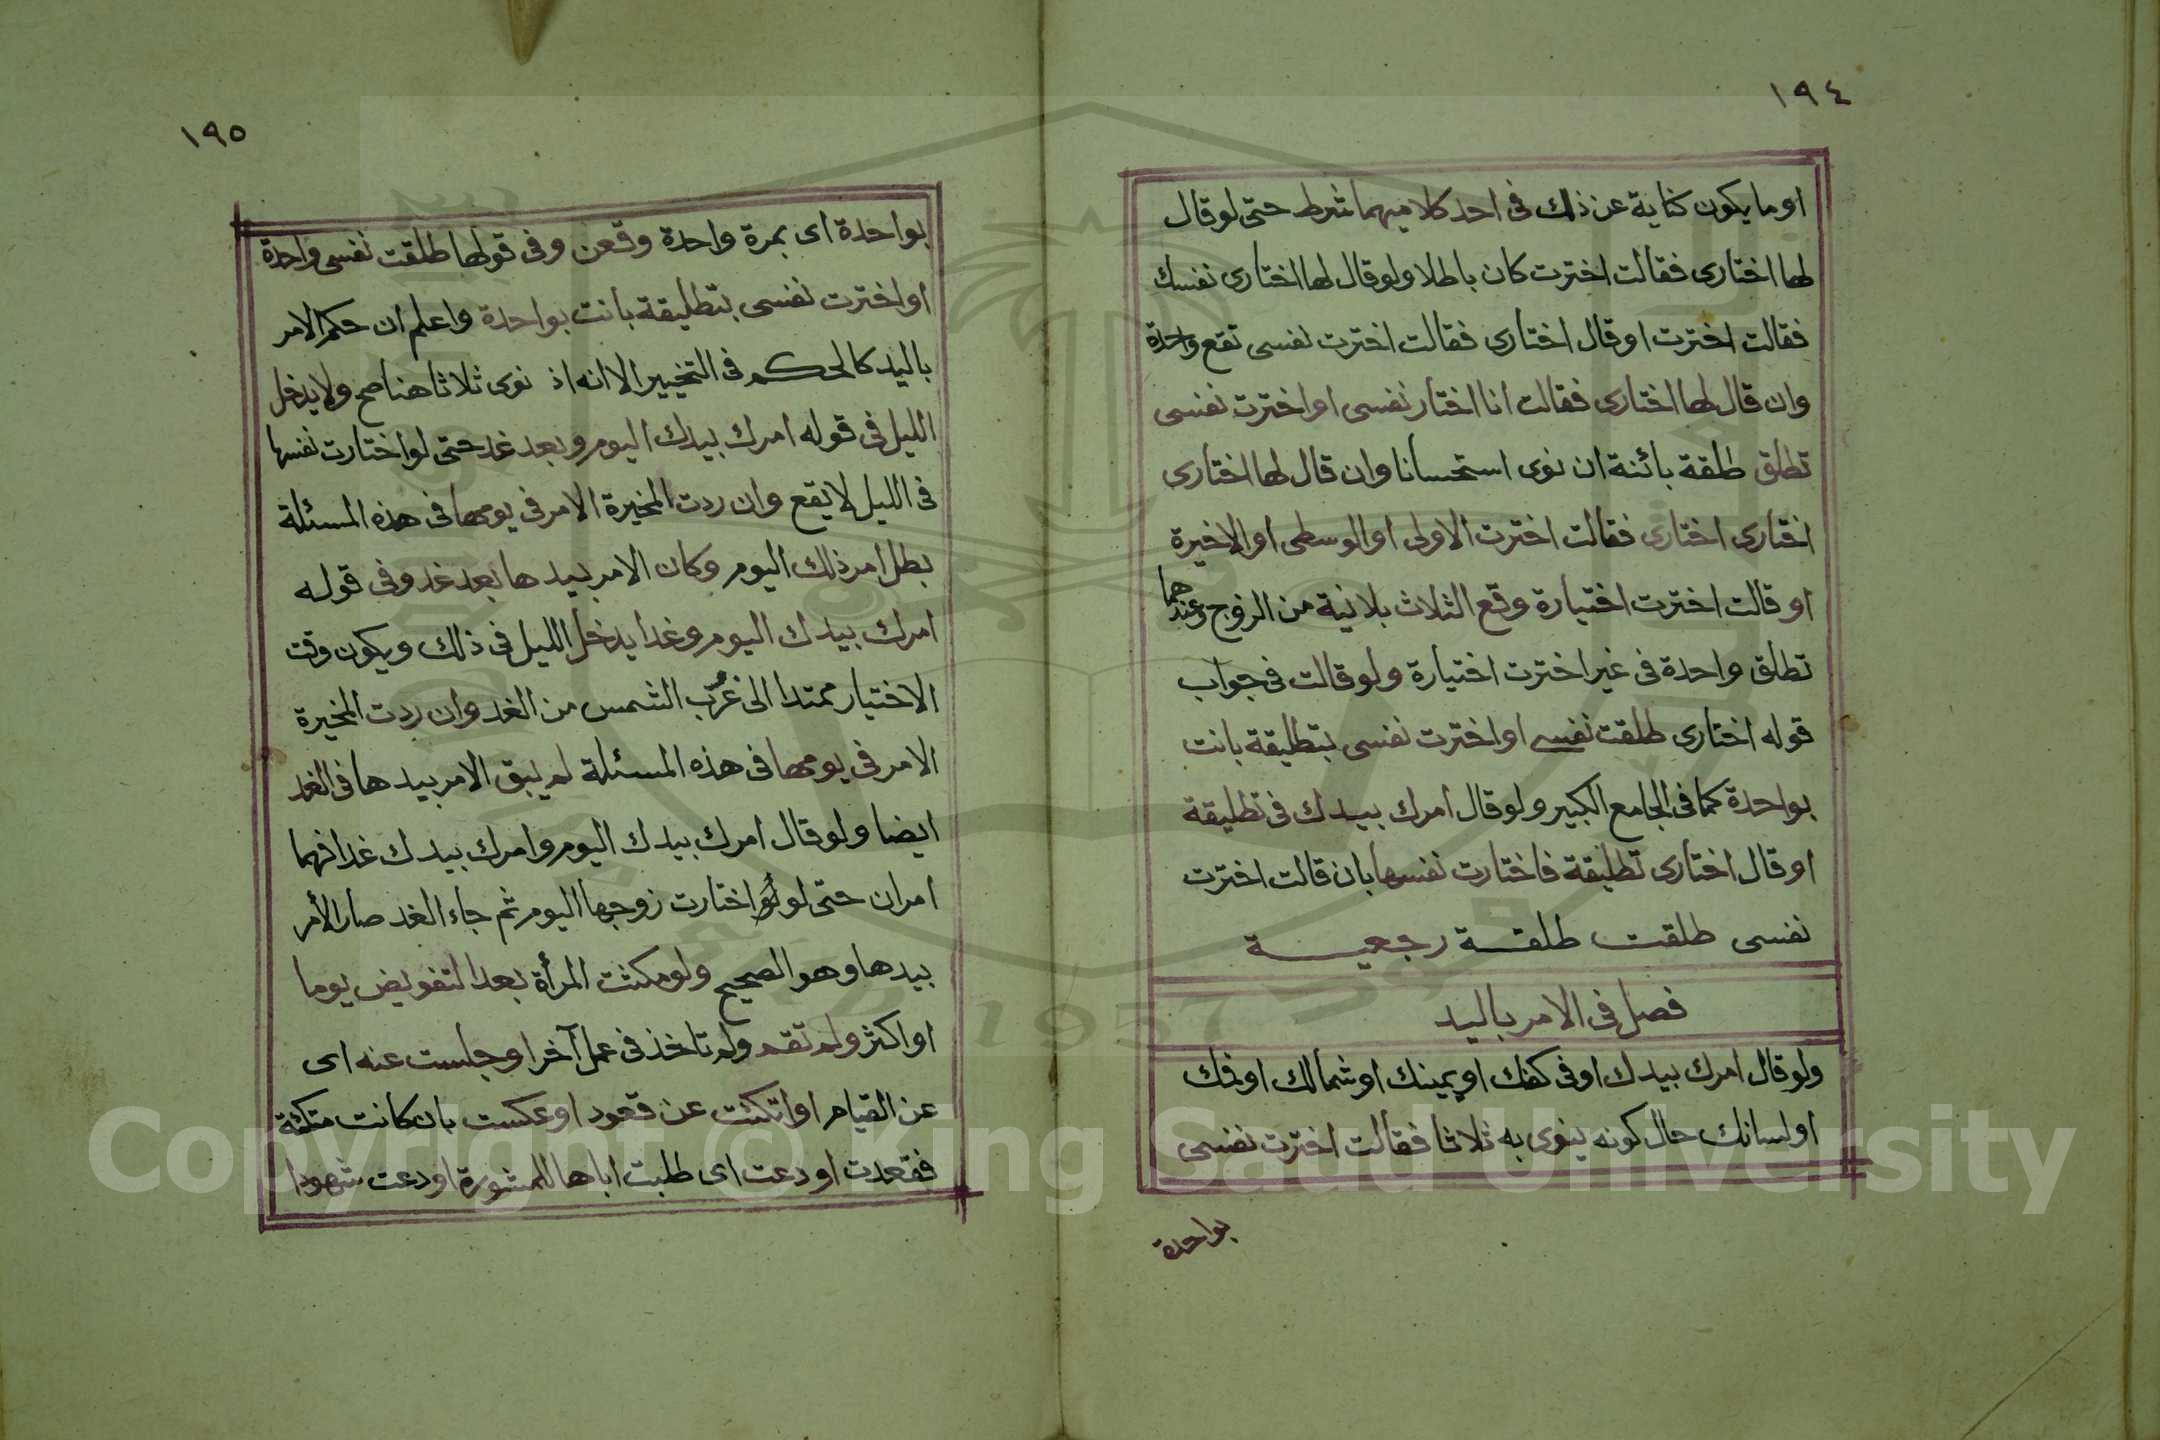 ١٩٤
او ما يكون كناية عن ذلك فى احد كلاميهما شرط حتى لو قال
لها اختارى فقالت اخترت كان باطلا ولو قال لها اختارى نفسك
فقالت اخترت او قال اختارى فقالت اخترت نفسى تقع واحدة
وان قال لها اختارى فقالت انا اختار نفسى او اخترت نفسى
تطلق طلقة بائنة ان نوى استحسانا وان قال لها اختارى
اختارى اختارى فقالت اخترت الاولى او الوسطى او الاخيرة
او قالت اخترت اختيارة وقع الثلاث بلانية من الزوج وعندهما
تطلق واحدة فى غير اخترت اختيارة ولو قالت فى جواب
قوله اختارى طلقت نفسى او اخترت نفسى بتطليقة بانت
بواحدة كما فى الجامع الكبير ولو قال امرك بيدك فى تطليقة
او قال اختارى تطليقة فاختارت نفسها بان قالت اخترت
نفسى طلقت طلقة رجعية
فصل فى الامر باليد
ولو قال امرك بيدك او فى كفك او يمينك او شمالك او فمك
او لسانك حال كونه ينوى به ثلاثا فقالت اخترت نفسى
بواحدة
١٩٥
بواحدة اى بمرة واحدة وقعن وفى قولها طلقت نفسى واحدة
او اخترت نفسى بتطليقة بانت بواحدة واعلم ان حكم الامر
باليد كالحكم فى التخيير الا انه اذ نوى ثلاثا هنا صح ولا يدخل
الليل فى قوله امرك بيدك اليوم وبعد غد حتى لو اختارت نفسها
فى الليل لا يقع وان ردت المخيرة الامر فى يومها فى هذه المسئلة
بطل امر ذلك اليوم وكان الامر بيدها بعد غد وفى قوله
امرك بيدك اليوم وغدا يدخل الليل فى ذلك ويكون وقت
الاختيار ممتدا الى غرب الشمس من الغد وان ردت المخيرة
الامر فى يومها فى هذه المسئلة لم يبق الامر بيدها فى الغد
ايضا ولو قال امرك بيدك اليوم وامرك بيدك غدا فهما
امران حتى لو اختارت زوجها اليوم ثم جاء الغد صار الأمر
بيدها وهو الصحيح ولو مكثت المرأة بعد التفويض يوما
او اكثر ولم تقم ولم تاخذ فى عمل آخر او جلست عنه اى
عن القيام او اتكئت عن قعود او عكست بان كانت متكئة
فقعدت او دعت اى طلبت اباها للمشورة او دعت شهودا
1957
Copyright © King Saud University